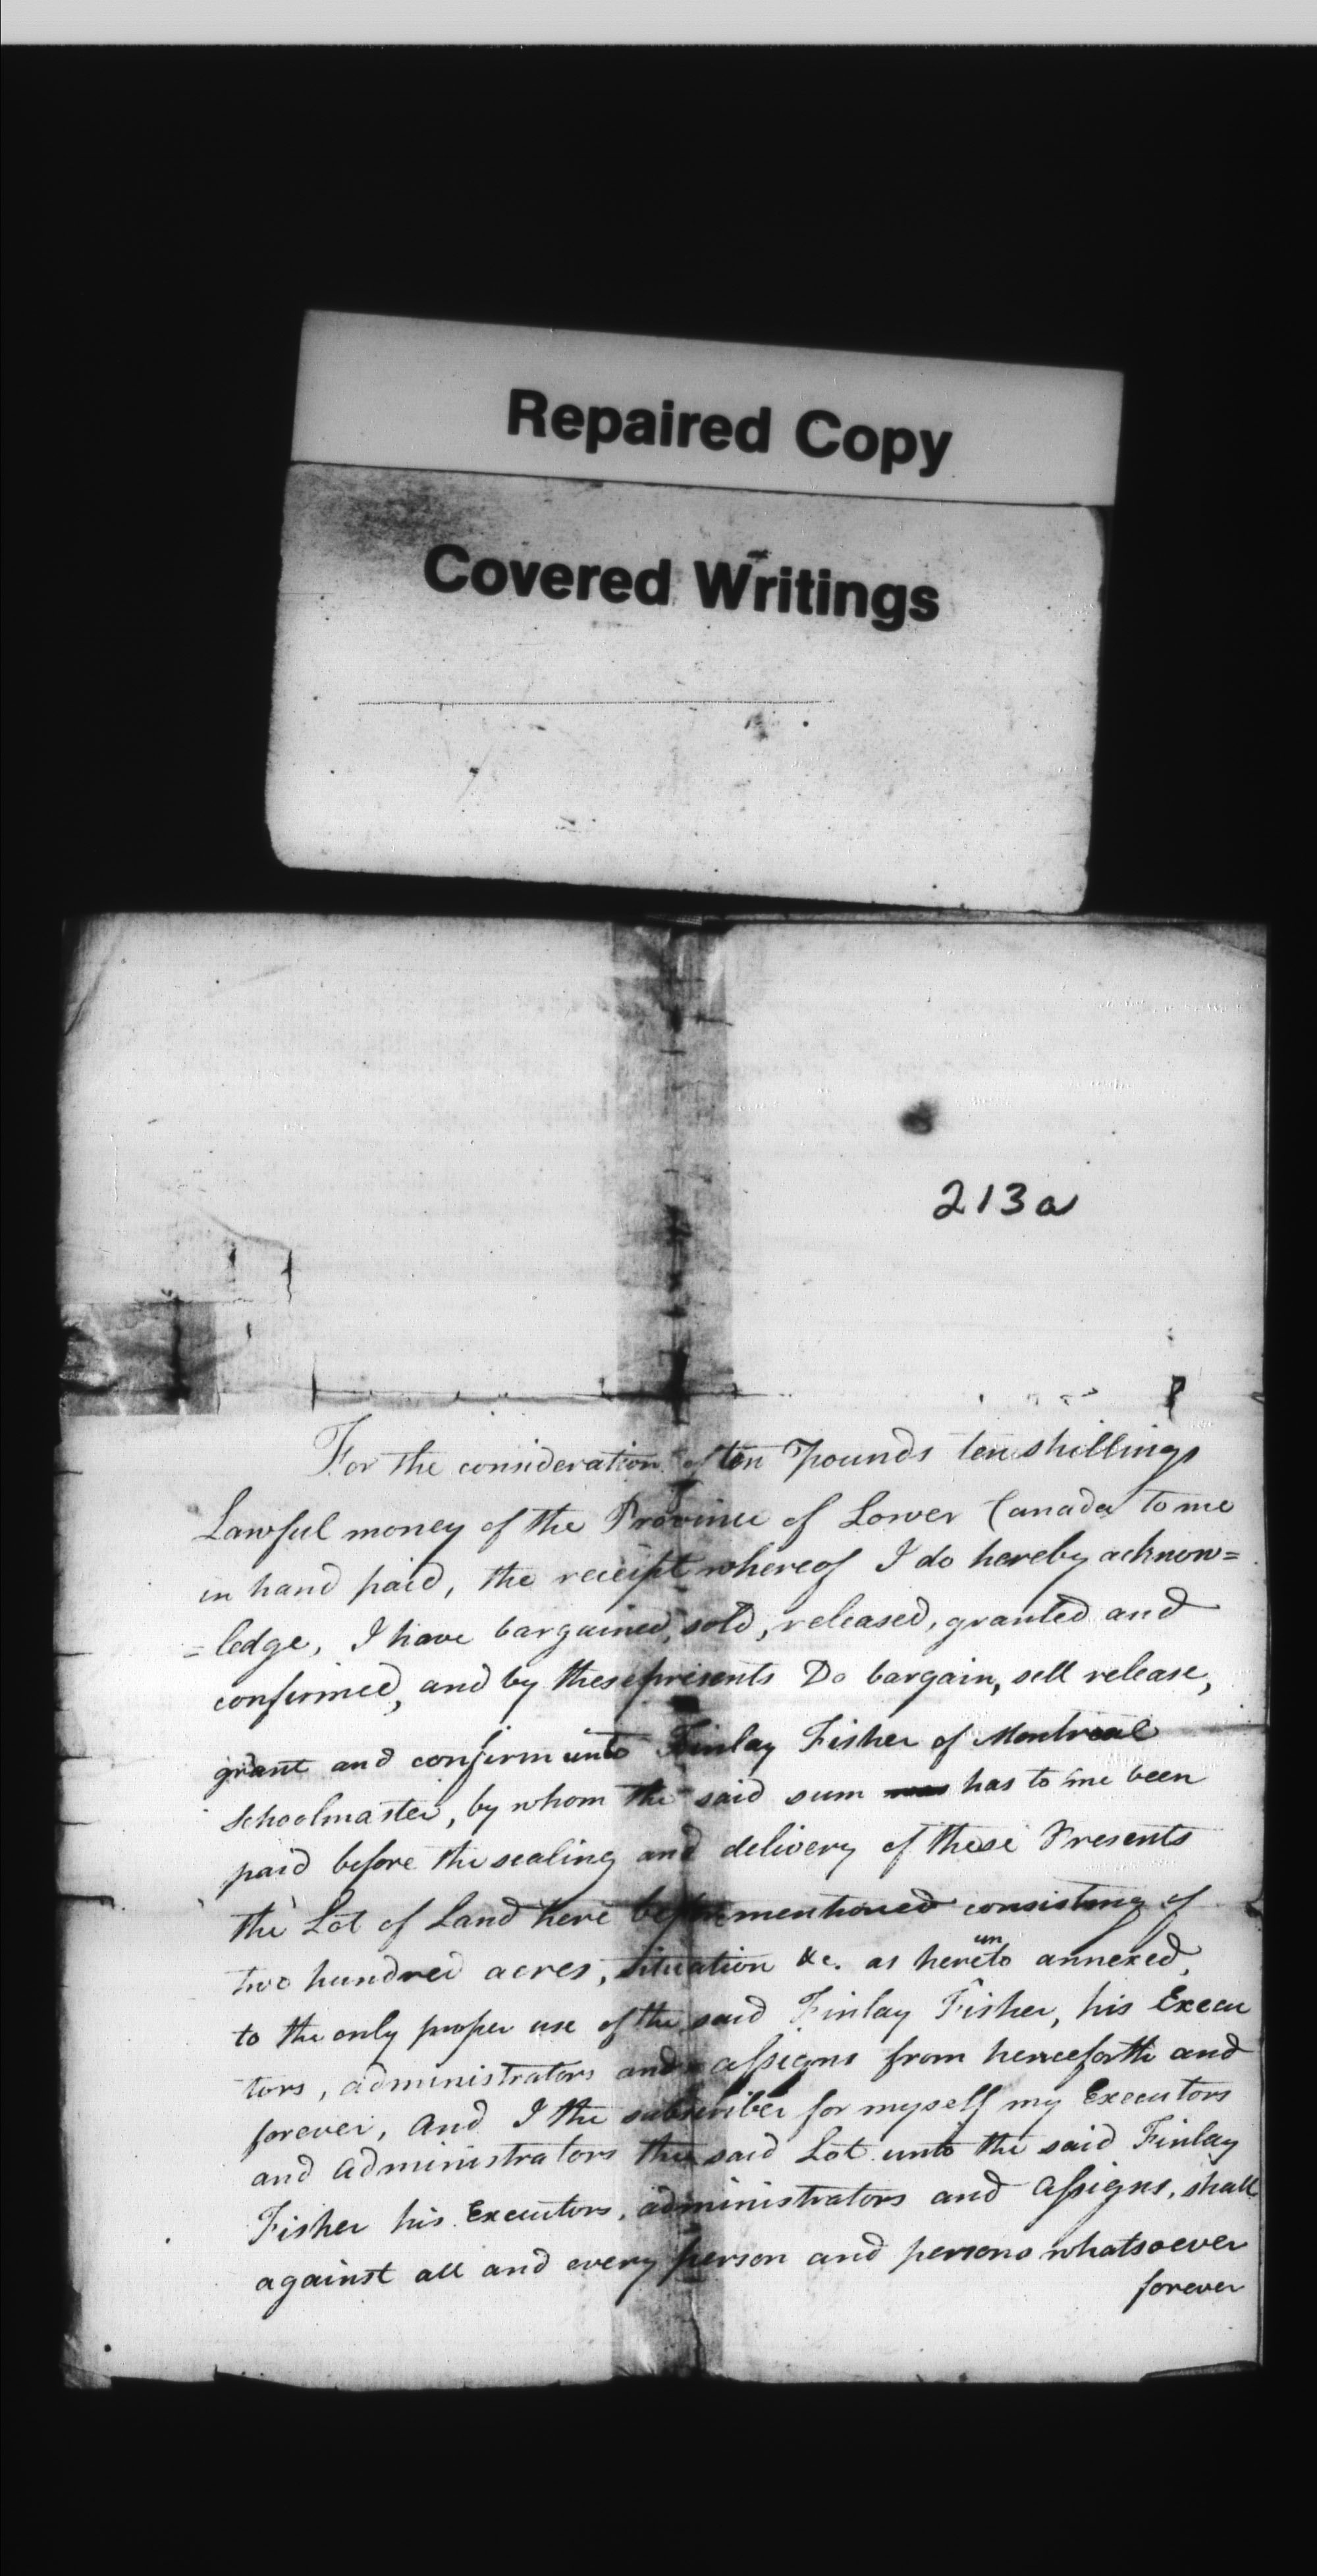 Repaired Copy
Covered Writings
213a
For the consideration of ten Pounds ten shillings
Lawful money of the Province of Lower Canada to me
in hand paid, the receipt whereof I do hereby acknow=
=ledge, I have bargained, sold, released, granted and
confirmed, and by these presents Do bargain, sell release,
grant and confirm unto Finlay Fisher of Montreal
Schoolmaster, by whom the said sum has to me been
paid before the sealing and delivery of these Presents
the Lot of Land here before mentioned consisting of
two hundred acres, situation &c. as hereunto annexed,
to the only proper use of the said Finlay Fisher, his Execu
tors, administrators and assigns from henceforth and
forever, And I the subscriber for myself my Executors
and Administrators the said Lot unto the said Finlay
Fisher his Executors, administrators and Assigns, shall
against all and every person and persons whatsoever
forever